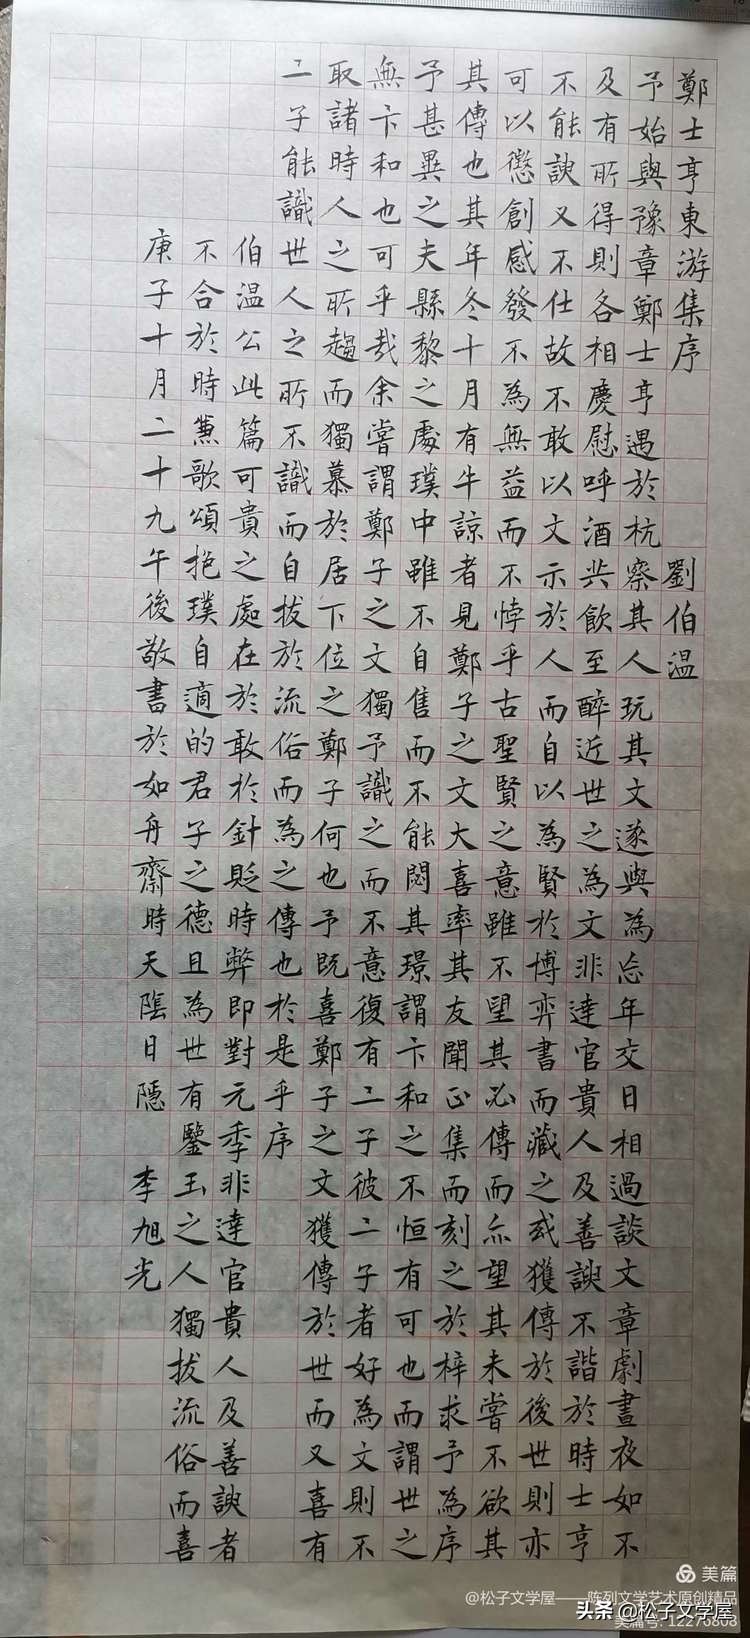 鄭士亨東游集序 劉伯温
予始與豫章鄭士亨遇於杭察其人玩其文遂與為忘年交日相過談文章劇晝夜如不
及有所得則各相慶慰呼酒共飲至醉近世之為文非達官貴人及善諛不諧於時士亨
不能諛又不仕故不敢以文示於人而自以為賢於博弈書而藏之或獲傳於後世則亦
可以懲創感發不為無益而不悖乎古聖賢之意雖不望其必傳而亦望其未嘗不欲其
其傳也其年冬十月有牛諒者見鄭子之文大喜率其友聞正集而刻之於梓求予為序
予甚異之夫縣黎之處璞中雖不自售而不能悶其璟謂卞和之不恒有可也而謂世之
無卞和也可乎哉余嘗謂鄭子之文獨予識之而不意復有二子彼二子者好為文則不
取諸時人之所趨而獨慕於居下位之鄭子何也予既喜鄭子之文獲傳於世而又喜有
二子能識世人之所不識而自拔於流俗而為之傳也於是乎序
伯温公此篇可貴之處在於敢於針貶時弊即對元季非達官貴人及善諛者
不合於時兼歌頌抱璞自適的君子之德且為世有鑒玉之人獨拔流俗而喜
庚子十月二十九午後敬書於如舟齋時天陰日隱 李旭光
美篇
@松子文学屋——陈列文学艺术原创精品
美篇号: 12276808
头条 @松子文学屋